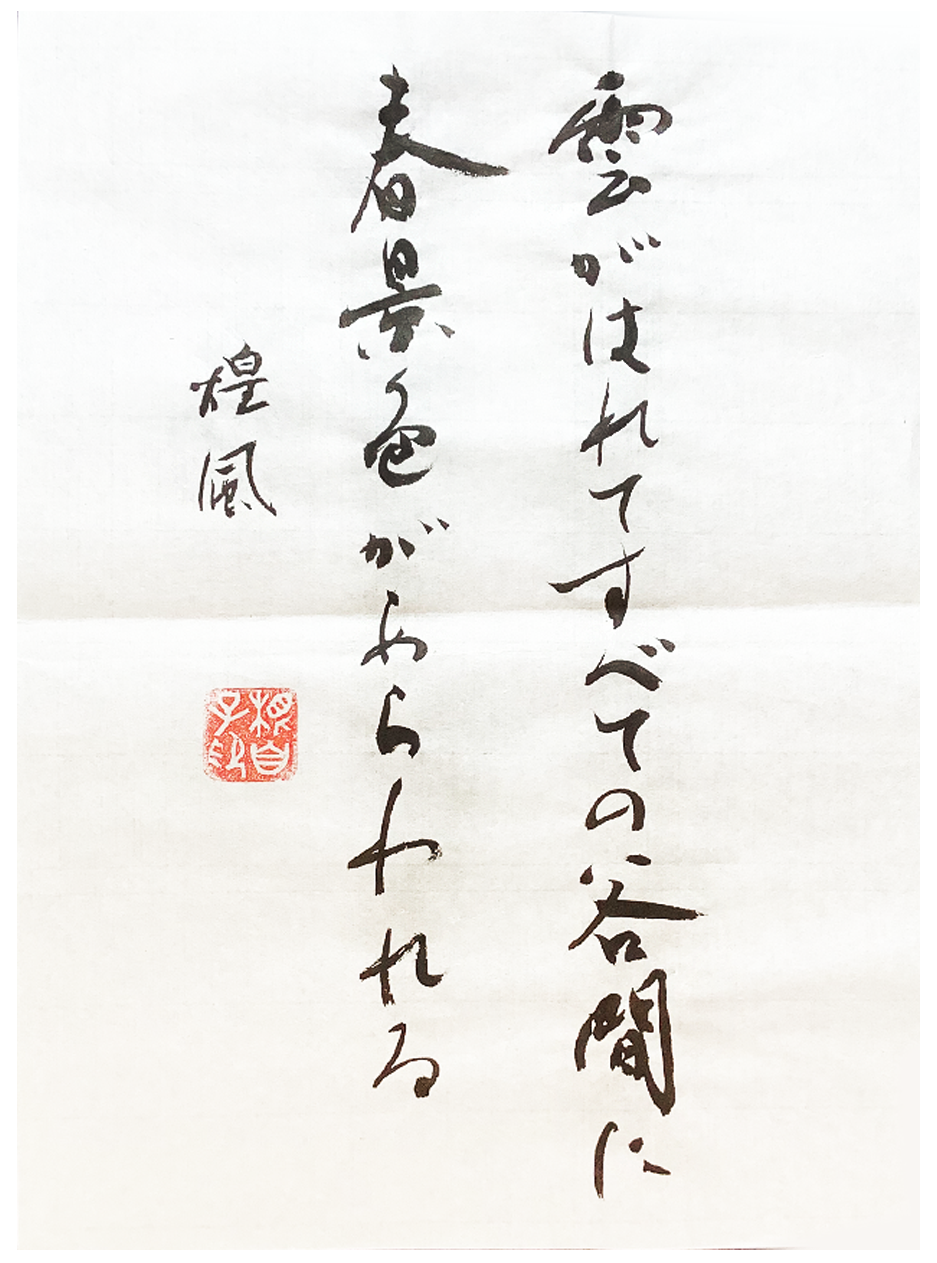 雲がはれてすべての谷間に
春景色があらわれる
煌風